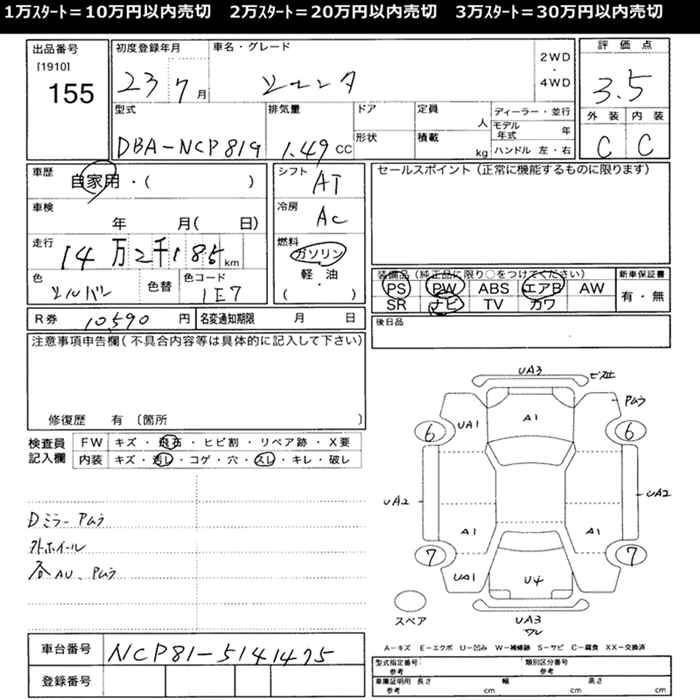 1万ｽﾀｰﾄ＝10万円以内売切　2万ｽﾀｰﾄ＝20万円以内売切　3万ｽﾀｰﾄ＝30万円以内売切
出品番号
[1910]
155
初度登録年月
23 7月
車名・グレード
シエンタ
2WD
・
4WD
評価点
3.5
外装 内装
C C
型式
DBA-NCP81G
排気量
1.49 CC
ドア
形状
定員 人
積載 kg
ディーラー・並行
モデル年式 年
ハンドル 左・右
車歴
自家用・( )
シフト
AT
セールスポイント（正常に機能するものに限ります）
車検
年 月( 日)
冷房
AC
走行
14万2千185km
燃料
ガソリン
軽・油
( )
色
シルバー
色替
色コード
1E7
装備品（純正品に限り○をつけてください）
PS PW ABS エアB AW
SR ナビ TV カワ
新車保証書
有・無
R券 10,590 円
名変通知期限 月 日
後日品
注意事項申告欄（不具合内容等は具体的に記入して下さい）
修復歴 有〔箇所 〕
検査員
記入欄
FW キズ・飛石・ヒビ割・リペア跡・X要
内装 キズ・汚レ・コゲ・穴・スレ・キレ・破レ
Dミラー Pムラ
外ホイール
各AU、Pムラ
UA3
Pムラ
UA1 A1
6 6
UA2 UA2
A1 A1
7 7
UA1 U4
UA3
ワレ
スペア
A－キズ E－エクボ U－凹み W－補修跡 S－サビ C－腐食 XX－交換済
車台番号
NCP81-5141475
登録番号
型式指定番号
参考
類別区分番号
参考
車庫証明用 長さ 幅 高さ
参考 cm cm cm